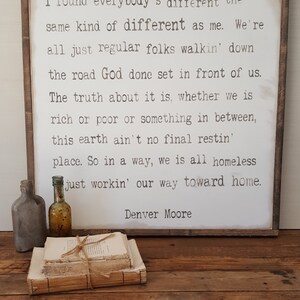 I found everybody's different the
same kind of different as me. We're
all just regular folks walkin' down
the road God done set in front of us.
The truth about it is, whether we is
rich or poor or something in between,
this earth ain't no final restin'
place. So in a way, we is all homeless
just workin' our way toward home.
Denver Moore